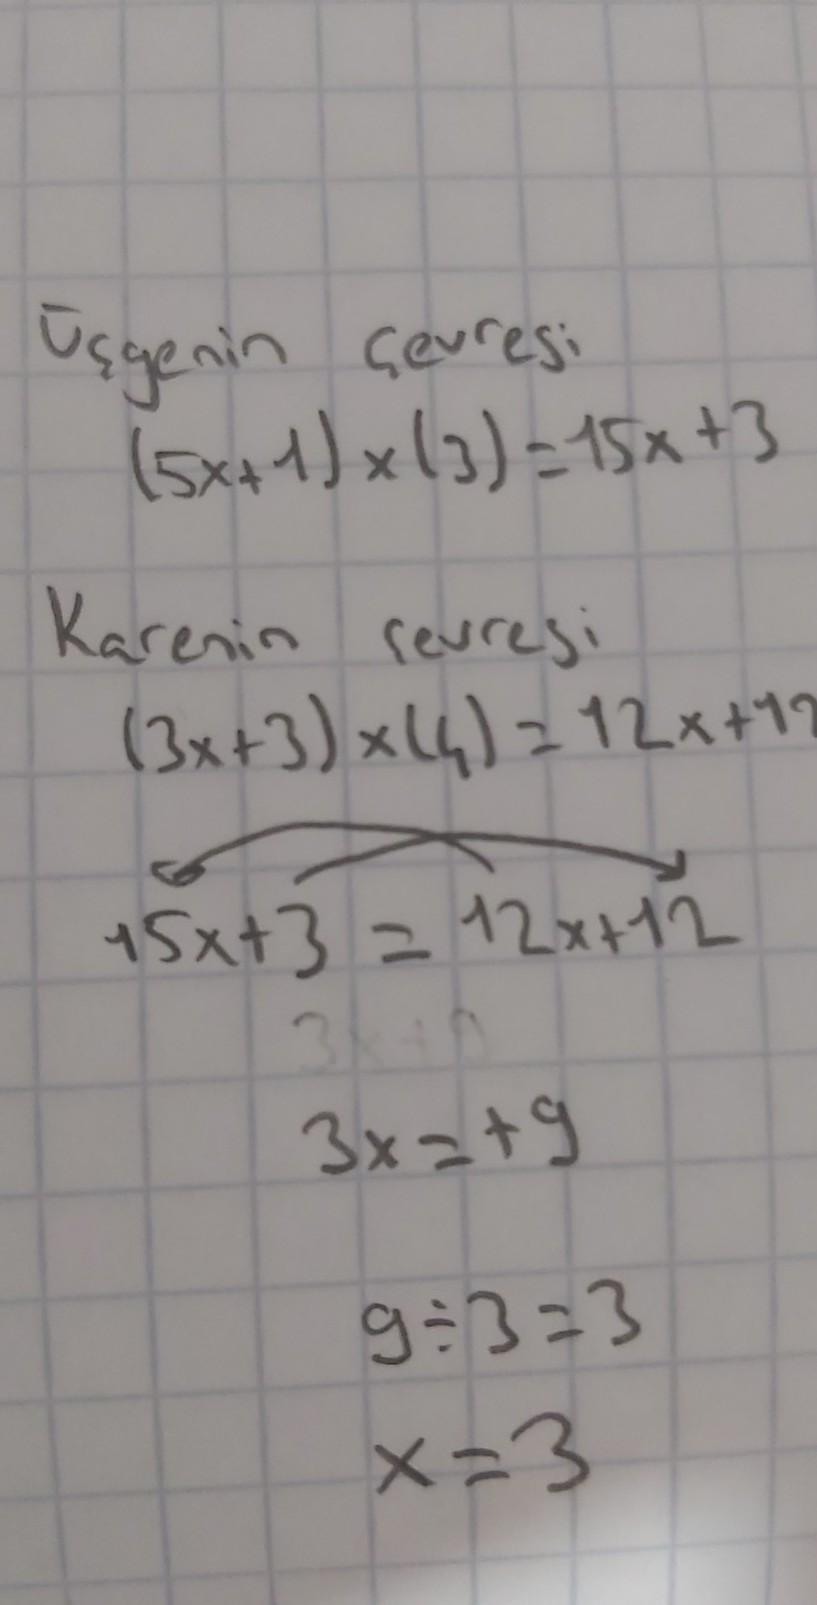 Üçgenin çevresi
(5x+1)x(3)=15x+3
Karenin çevresi
(3x+3)x(4)=12x+12
15x+3=12x+12
3x=+9
9÷3=3
x=3